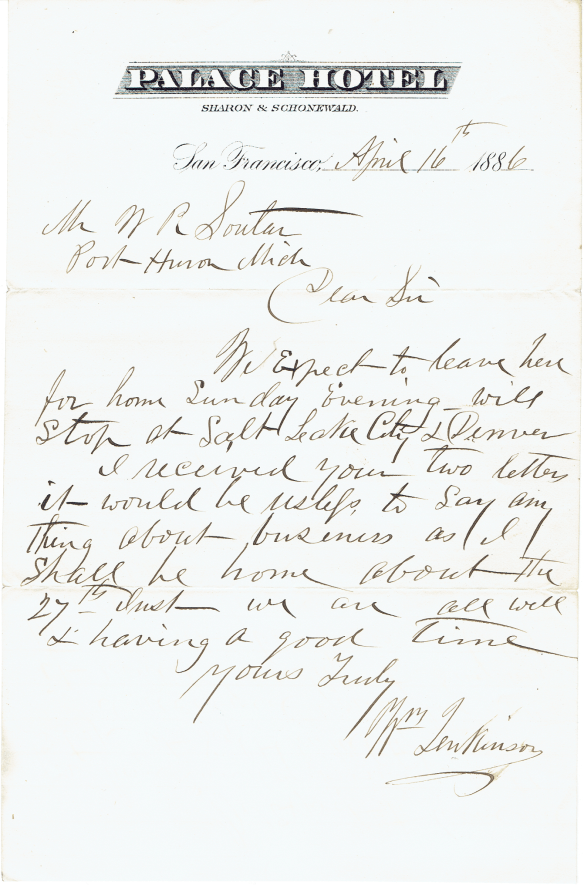 PALACE HOTEL
SHARON & SCHONEWALD.
San Francisco, April 16th 1886
Mr W R Soutar
Port Huron Mich
Dear Sir
We Expect to leave here
for home Sunday Evening will
Stop at Salt Leake City & Denver
I received your two letters
it would be usless to Say any
thing about business as I
Shall be home about the
27th Inst we are all well
& having a good time
yours Truly
Wm Jenkinson